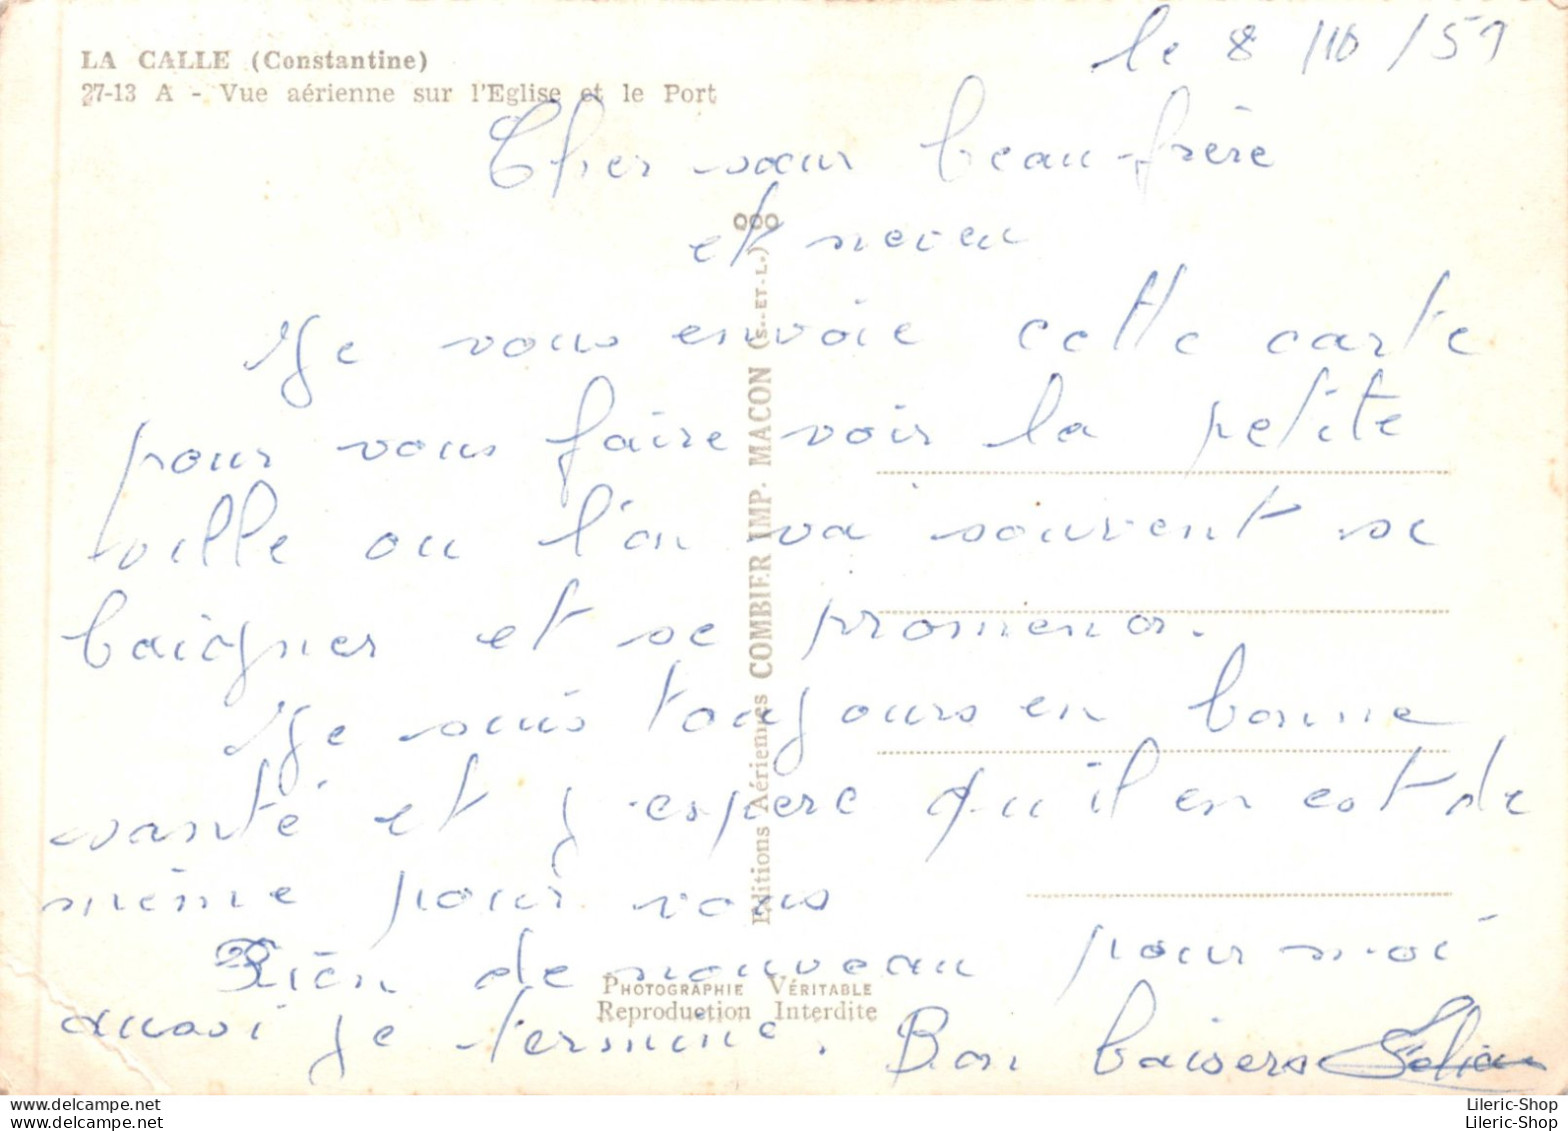 LA CALLE (Constantine)
27-13 A - Vue aérienne sur l'Eglise et le Port
le 8/10/59
Cher sœur beau-frère
et neveu
Je vous envoie cette carte
pour vous faire voir la petite
ville ou l'on va souvent se
baigner et se promener.
Je suis toujours en bonne
santé et j'espere qu'il en est de
même pour vous
Rien de nouveau pour moi
aussi je termine. Bon baisers
OOO
Editions Aériennes COMBIER IMP. MACON (S.-ET-L.)
PHOTOGRAPHIE VÉRITABLE
Reproduction Interdite
Lileric-Shop
Lileric-Shop.com
Lileric-Shop
Lileric-Shop.com